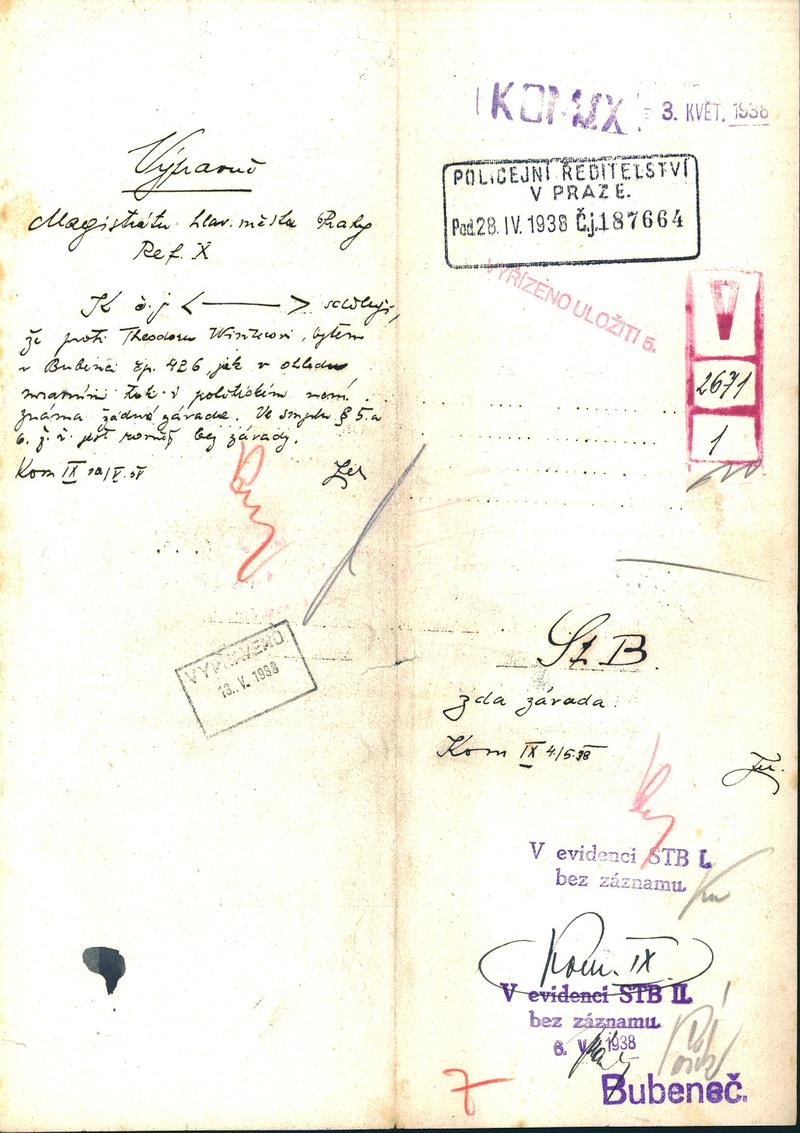 Výpravně
Magistrátu hlav. města Prahy
Ref. X
K č. j. < > sděluji,
že proti Theodoru bytem
v Bubenči čp. 426, jak v ohledu
mravním tak i politickém není
známa žádná závada. Ve smyslu § 5. a
6. ž. ř. jest rovněž bez závady.
Kom IX
VYPRAVENO
13. V. 1938
KOM IX
- 3. KVĚT. 1938
POLICEJNÍ ŘEDITELSTVÍ
V PRAZE.
Pod. 28. IV. 1938 Č.j. 187664
VYŘÍZENO ULOŽITI 5.
V
2671
1
St B.
zda závada.
Kom IX 4/5.38
V evidenci STB I.
bez záznamu.
Kom. IX
V evidenci STB II.
bez záznamu.
6. V. 1938
7
Bubeneč.